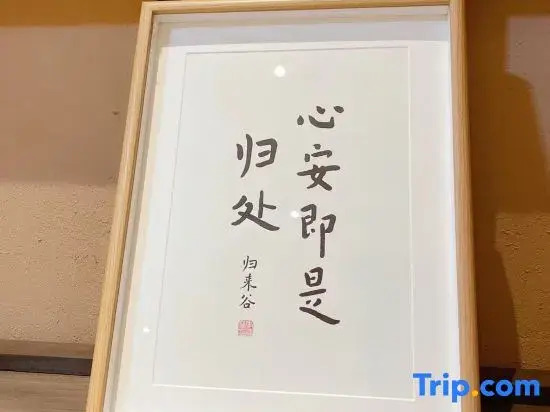 心安即是
归处
归来谷
Trip.com